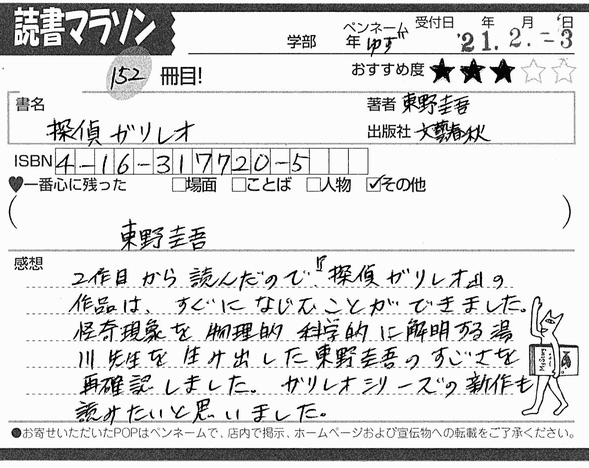 読書マラソン
学部 年 ペンネーム ゆず 受付日 年 月 日 '21.2.-3
152 冊目! おすすめ度 ★★★☆☆
書名 探偵ガリレオ
著者 東野圭吾
出版社 文藝春秋
ISBN 4-16-317720-5
♥一番心に残った □場面 □ことば □人物 ☑その他
( 東野圭吾 )
感想
2作目から読んだので『探偵ガリレオ』の
作品は、すぐになじむことができました。
怪奇現象を物理的科学的に解明する湯
川先生を生み出した東野圭吾のすごさを
再確認しました。ガリレオシリーズの新作も
読みたいと思いました。
●お寄せいただいたPOPはペンネームで、店内で掲示、ホームページおよび宣伝物への転載をご了承ください。